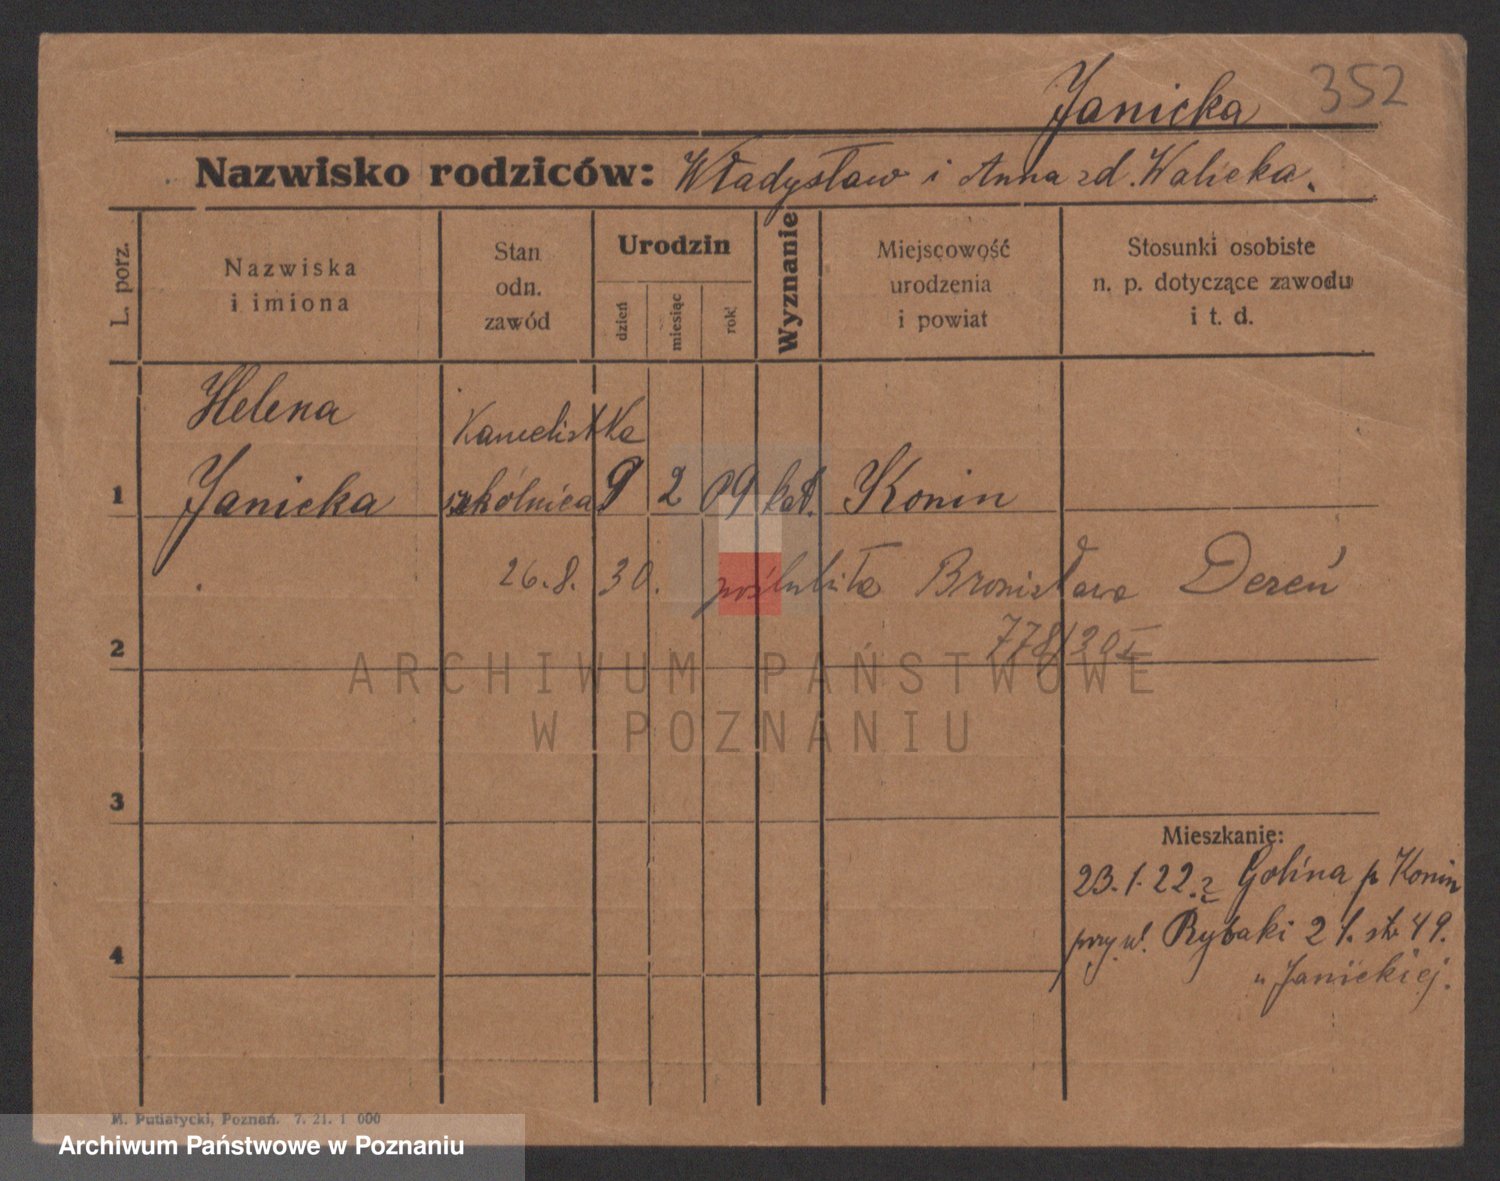 Janicka 352
Nazwisko rodziców: Władysław i Anna zd. Walicka.
L. porz.
Nazwiska
i imiona
Stan
odn.
zawód
Urodzin
dzień
miesiąc
rok
Wyznanie
Miejscowość
urodzenia
i powiat
Stosunki osobiste
n. p. dotyczące zawodu
i t. d.
Helena
1 Janicka szkólnica 9 2 09 kat. Konin
26.8.30. poślubiła Bronisława Dereń
778/30 I
2
ARCHIWUM PAŃSTWOWE
W POZNANIU
3
Mieszkanie:
23.1.22. z Golina p Konin
przy ul. Rybaki 21. str 49.
4
u Janickiej.
M. Putiatycki, Poznań. 7. 21. 1 000
Archiwum Państwowe w Poznaniu